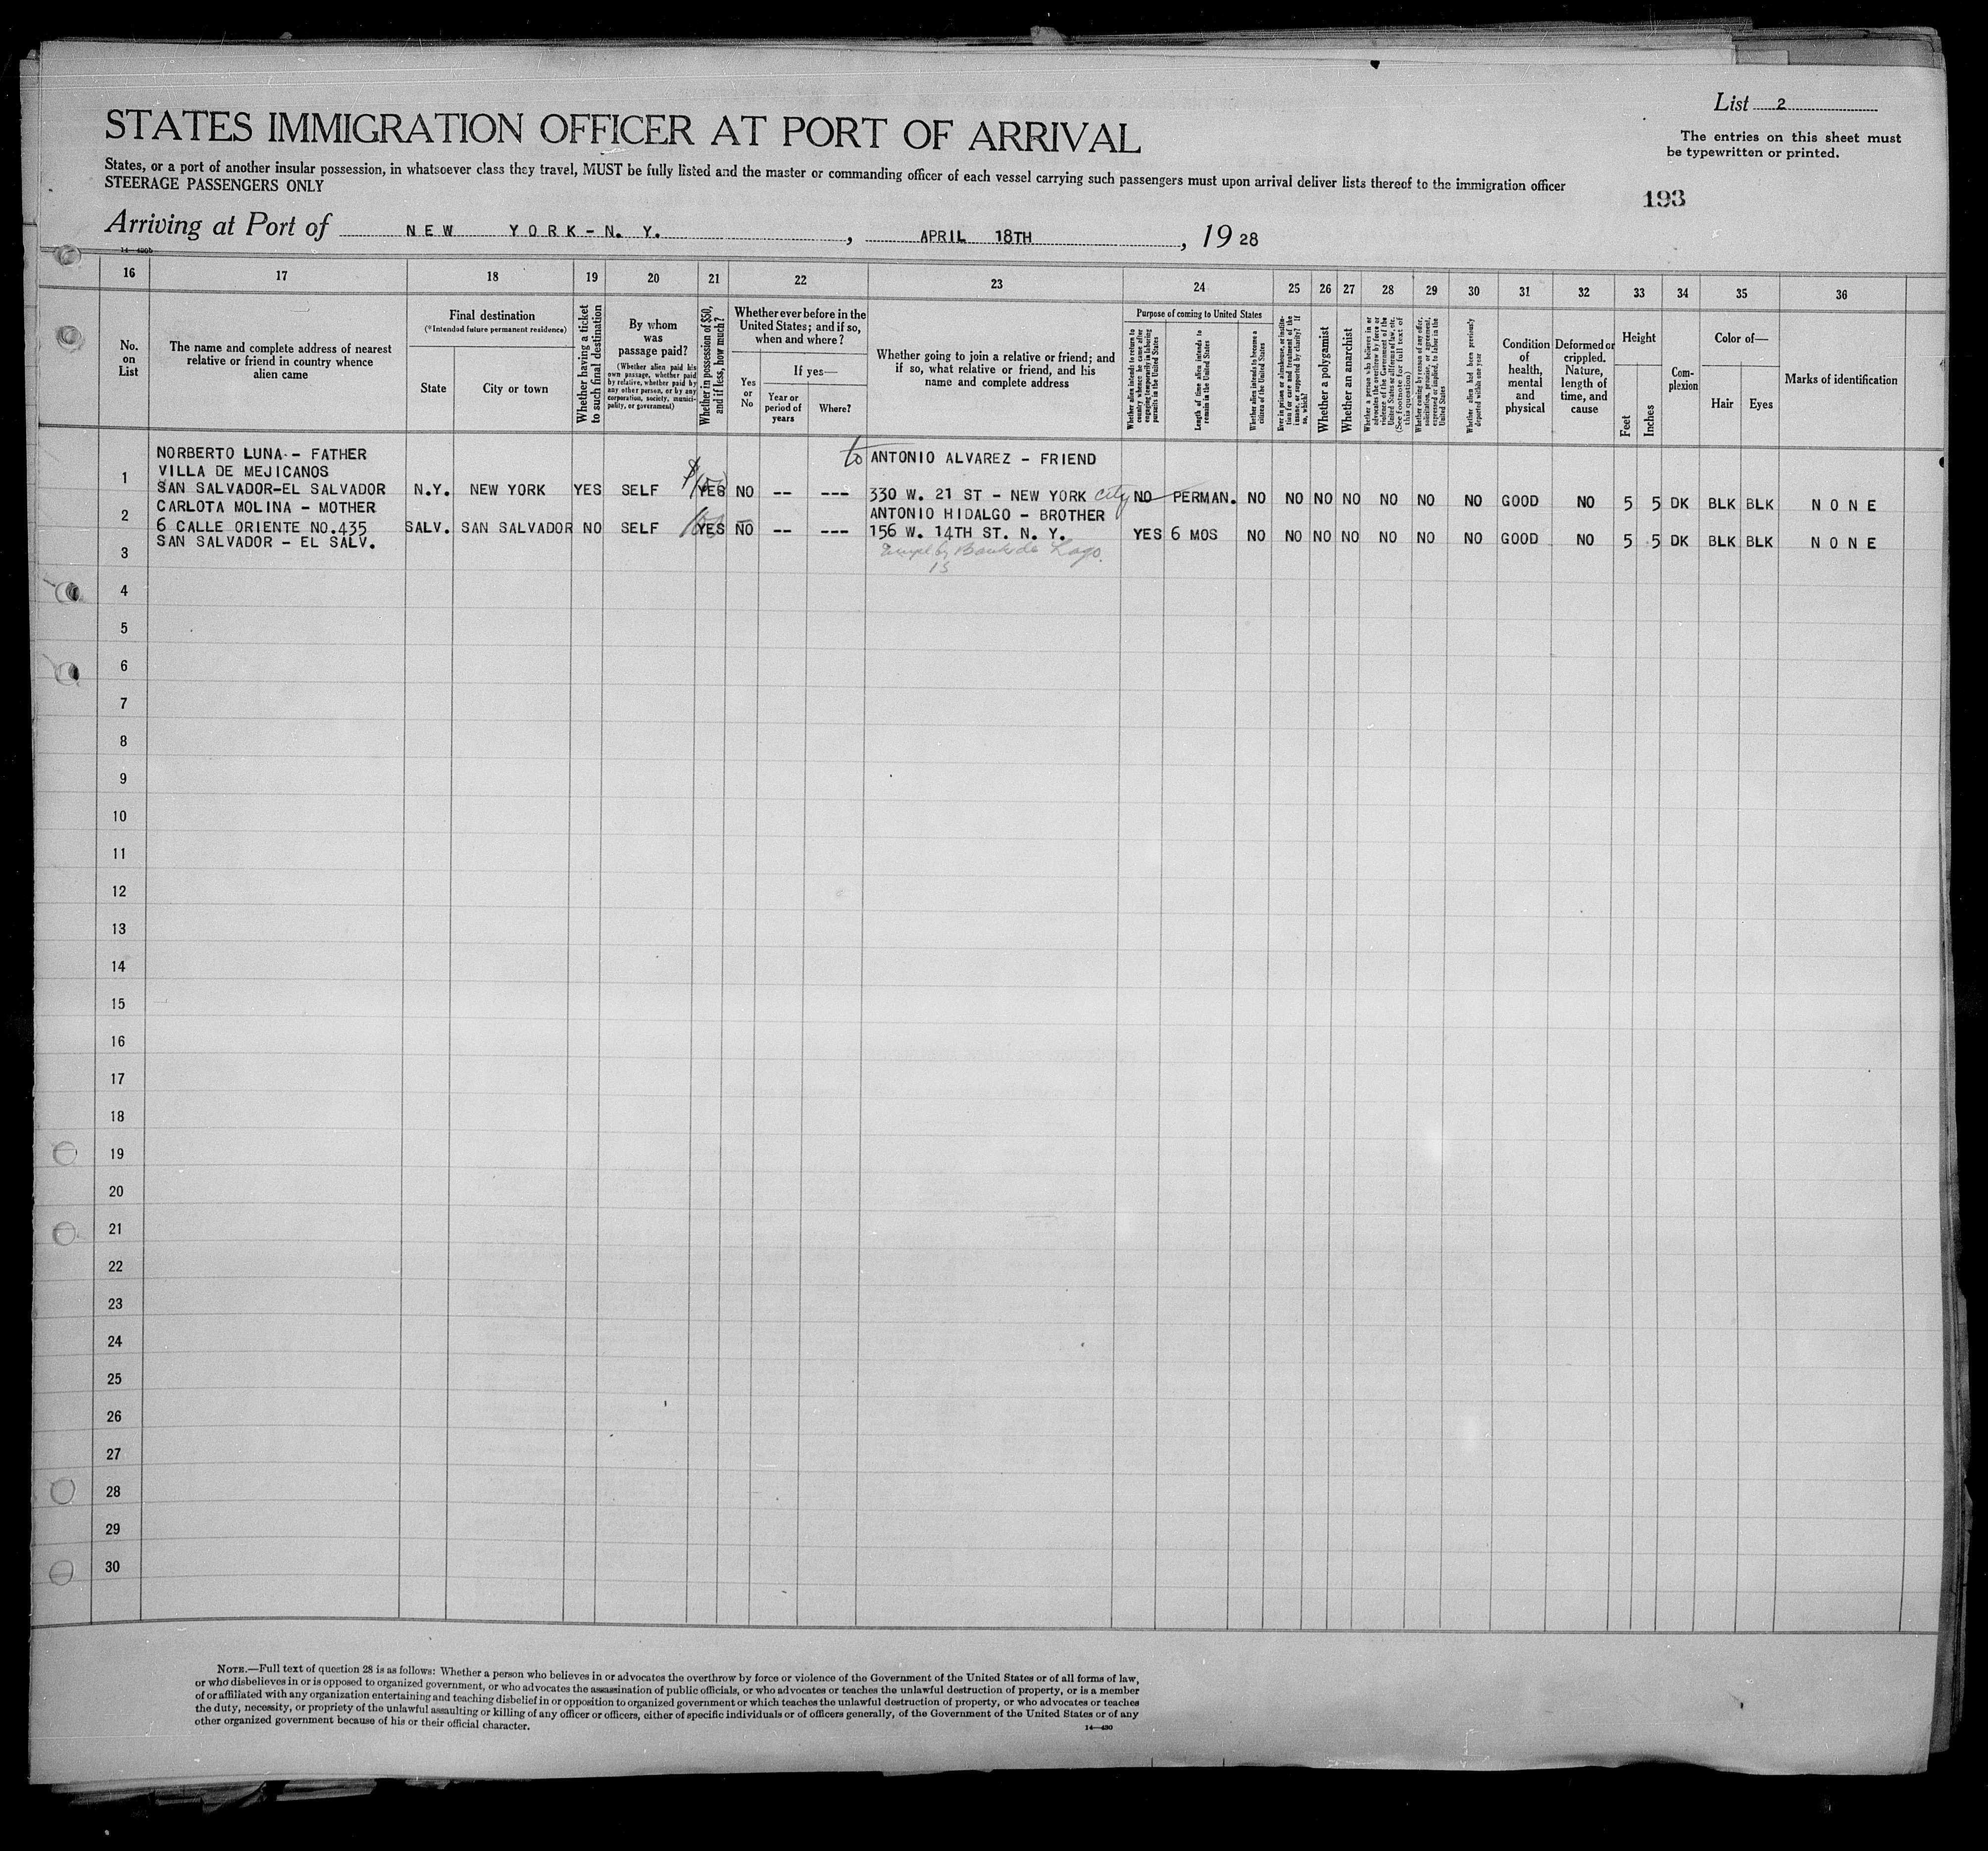 List 2
STATES IMMIGRATION OFFICER AT PORT OF ARRIVAL
The entries on this sheet must
be typewritten or printed.
States, or a port of another insular possession, in whatsoever class they travel, MUST be fully listed and the master or commanding officer of each vessel carrying such passengers must upon arrival deliver lists thereof to the immigration officer
STEERAGE PASSENGERS ONLY
193
Arriving at Port of NEW YORK-N. Y. , APRIL 18TH , 19 28
16 17 18 19 20 21 22 23 24 25 26 27 28 29 30 31 32 33 34 35 36
No.
on
List
The name and complete address of nearest
relative or friend in country whence
alien came
Final destination
(*Intended future permanent residence)
State
City or town
Whether having a ticket
to such final destination
By whom
was
passage paid?
(Whether alien paid his
own passage, whether paid
by relative, whether paid by
any other person, or by any
corporation, society, munici-
pality, or government)
Whether in possession of $50,
and if less, how much?
Whether ever before in the
United States; and if so,
when and where?
Yes
or
No
If yes—
Year or
period of
years
Where?
Whether going to join a relative or friend; and
if so, what relative or friend, and his
name and complete address
Purpose of coming to United States
Whether alien intends to return to
country whence he came after
engaging temporarily in laboring
pursuits in the United States
Length of time alien intends to
remain in the United States
Whether alien intends to become a
citizen of the United States
Ever in prison or almshouse, or institu-
tion for care and treatment of the
insane, or supported by charity? If
so, which?
Whether a polygamist
Whether an anarchist
Whether a person who believes in or
advocates the overthrow by force or
violence of the Government of the
United States or all forms of law, etc.
(See footnote for full text of
this question)
Whether coming by reason of any offer,
solicitation, promise, or agreement,
expressed or implied, to labor in the
United States
Whether alien had been previously
deported within one year
Condition
of
health,
mental
and
physical
Deformed or
crippled.
Nature,
length of
time, and
cause
Height
Feet
Inches
Com-
plexion
Color of—
Hair
Eyes
Marks of identification
NORBERTO LUNA - FATHER to ANTONIO ALVAREZ - FRIEND
1 VILLA DE MEJICANOS
SAN SALVADOR-EL SALVADOR N.Y. NEW YORK YES SELF YES NO -- --- 330 W. 21 ST - NEW YORK city NO PERMAN. NO NO NO NO NO NO NO GOOD NO 5 5 DK BLK BLK NONE
2 CARLOTA MOLINA - MOTHER ANTONIO HIDALGO - BROTHER
6 CALLE ORIENTE NO.435 SALV. SAN SALVADOR NO SELF YES NO -- --- 156 W. 14TH ST. N. Y. YES 6 MOS NO NO NO NO NO NO NO GOOD NO 5 5 DK BLK BLK NONE
SAN SALVADOR - EL SALV.
3
4
5
6
7
8
9
10
11
12
13
14
15
16
17
18
19
20
21
22
23
24
25
26
27
28
29
30
NOTE.—Full text of question 28 is as follows: Whether a person who believes in or advocates the overthrow by force or violence of the Government of the United States or of all forms of law,
or who disbelieves in or is opposed to organized government, or who advocates the assassination of public officials, or who advocates or teaches the unlawful destruction of property, or is a member
of or affiliated with any organization entertaining and teaching disbelief in or opposition to organized government or which teaches the unlawful destruction of property, or who advocates or teaches
the duty, necessity, or propriety of the unlawful assaulting or killing of any officer or officers, either of specific individuals or of officers generally, of the Government of the United States or of any
other organized government because of his or their official character.
14—430